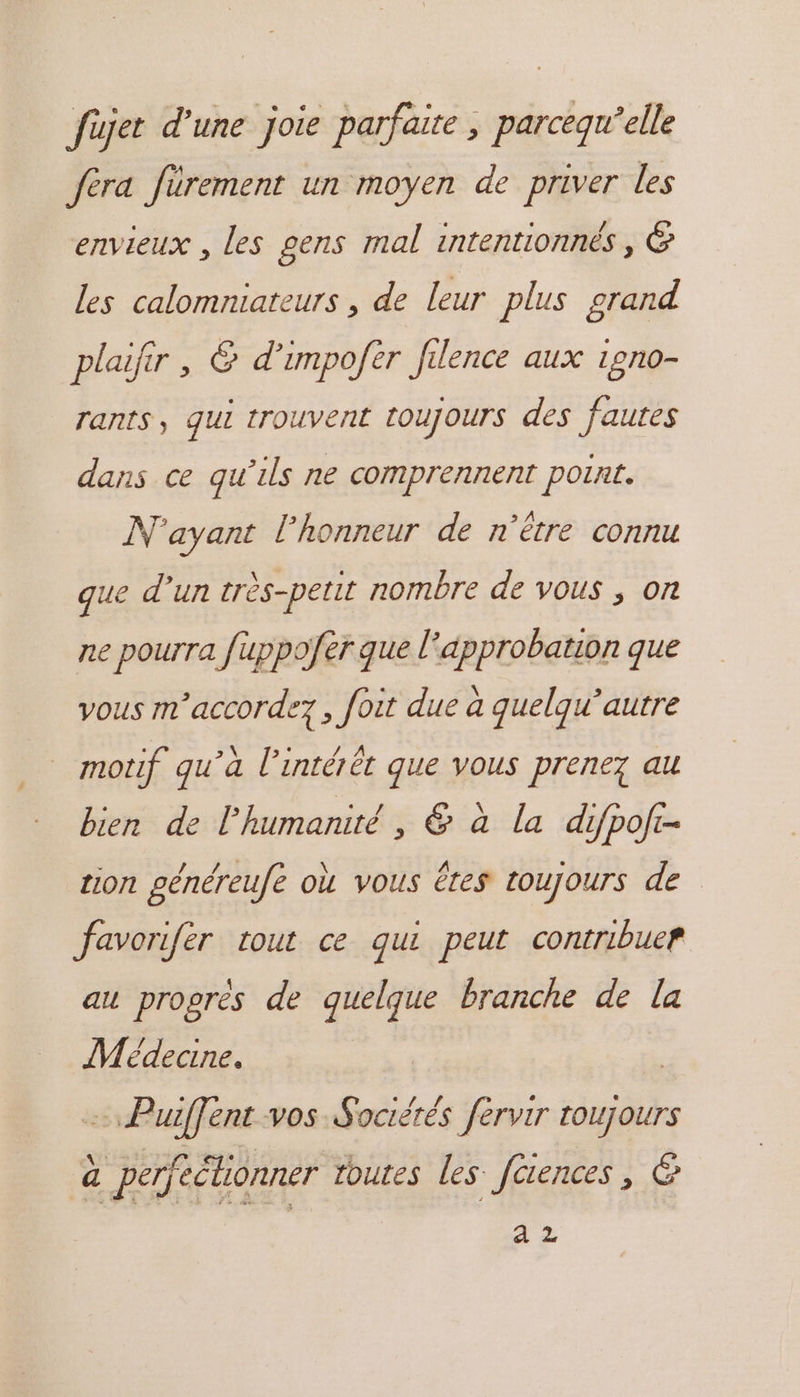 ſujet d'une joie parfaite, parcequ'elle
ſera ſûrement un moyen de priver les
envieux, les gens mal intentionnés, &
les calomniateurs, de leur plus grand
plaiſir, & d'impoſer ſilence aux igno-
rants, qui trouvent toujours des fautes
dans ce qu'ils ne comprennent point.
N'ayant l'honneur de n'être connu
que d'un très-petit nombre de vous, on
ne pourra ſuppoſer que l'approbation que
vous m'accordez, ſoit due à quelqu'autre
motif qu'à l'intérêt que vous prenez au
bien de l'humanité, & à la diſpoſi-
tion généreuſe où vous êtes toujours de
favoriſer tout ce qui peut contribuer
au progrès de quelque branche de la
Médecine.
Puiſſent vos Sociétés ſervir toujours
à perfectionner toutes les ſciences, &
a 2